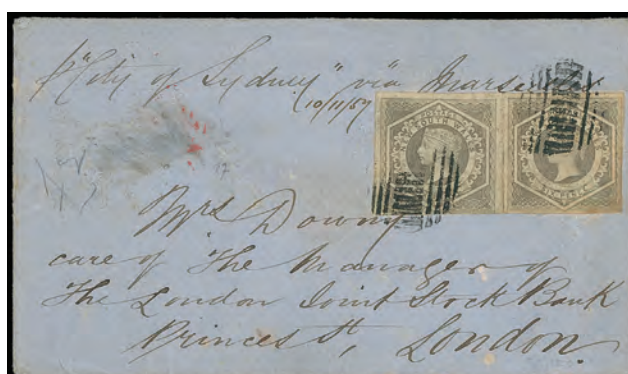 p "City of Sydney" via Marseilles
10/11/57
POSTAGE
SOUTH WALES
17
Mrs Downy
care of The Manager of
The London Joint Stock Bank
Princes St, London.